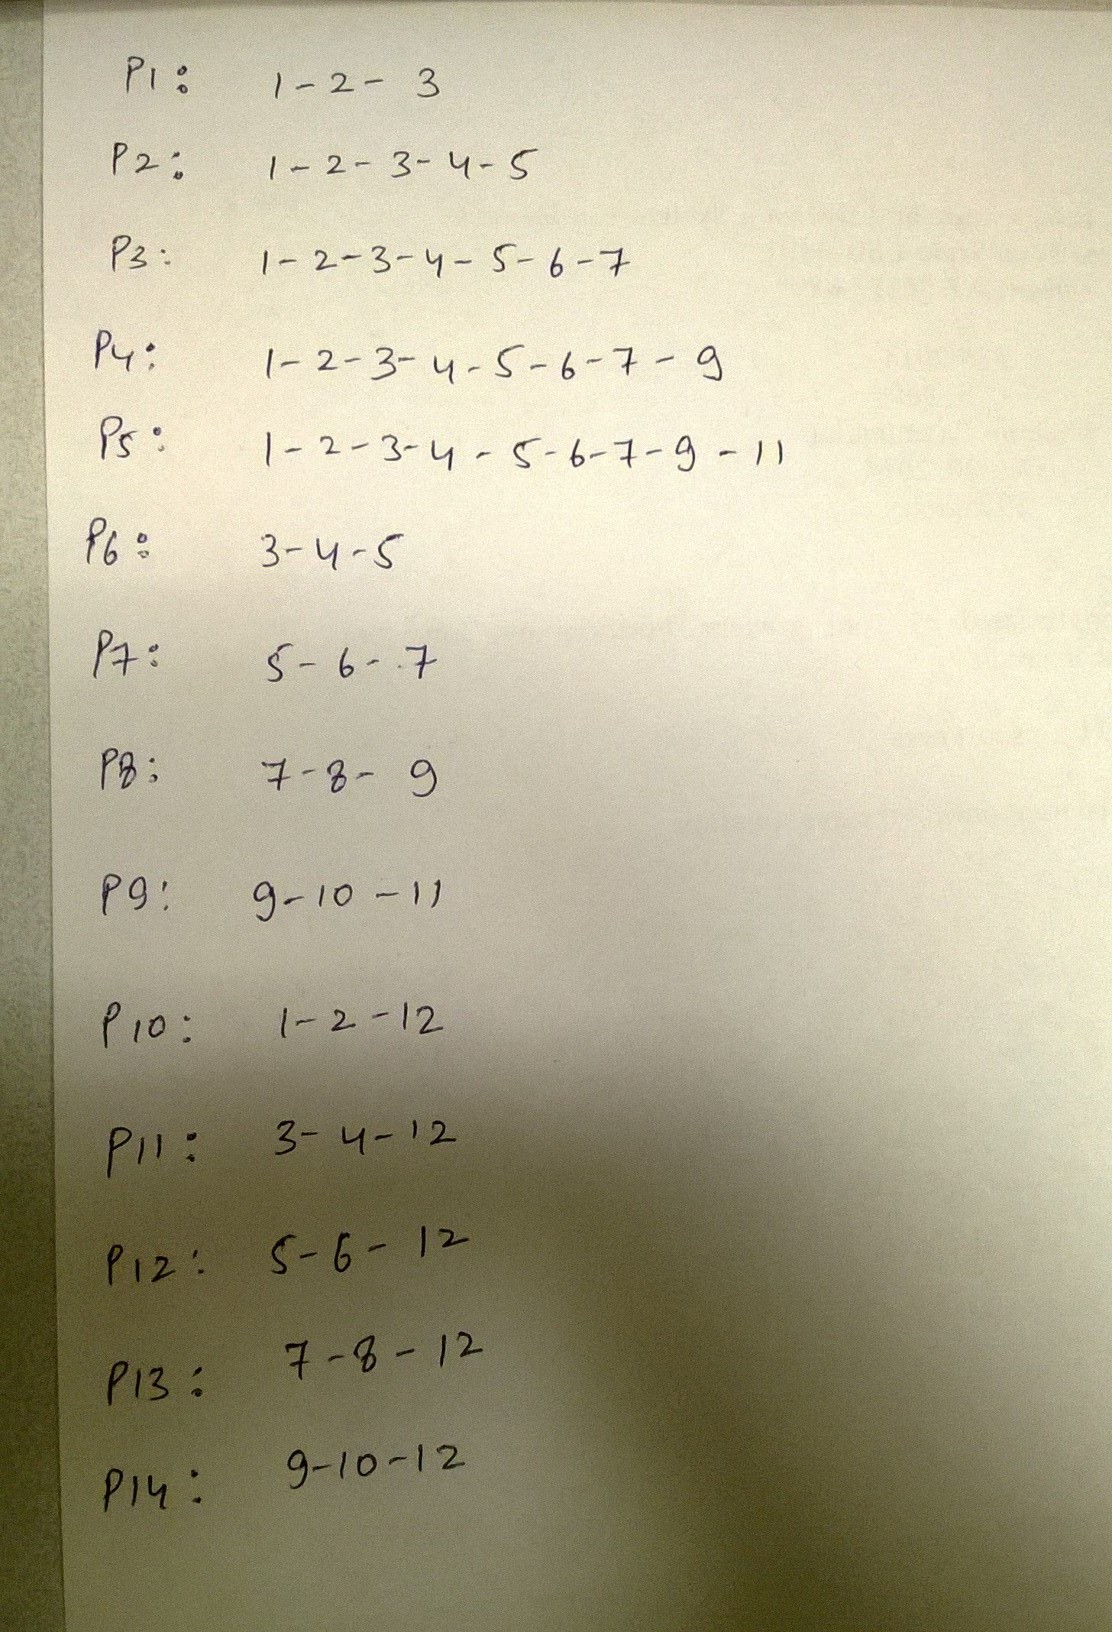 P1: 1-2-3
P2: 1-2-3-4-5
P3: 1-2-3-4-5-6-7
P4: 1-2-3-4-5-6-7-9
P5: 1-2-3-4-5-6-7-9-11
P6: 3-4-5
P7: 5-6-7
P8: 7-8-9
P9: 9-10-11
P10: 1-2-12
P11: 3-4-12
P12: 5-6-12
P13: 7-8-12
P14: 9-10-12